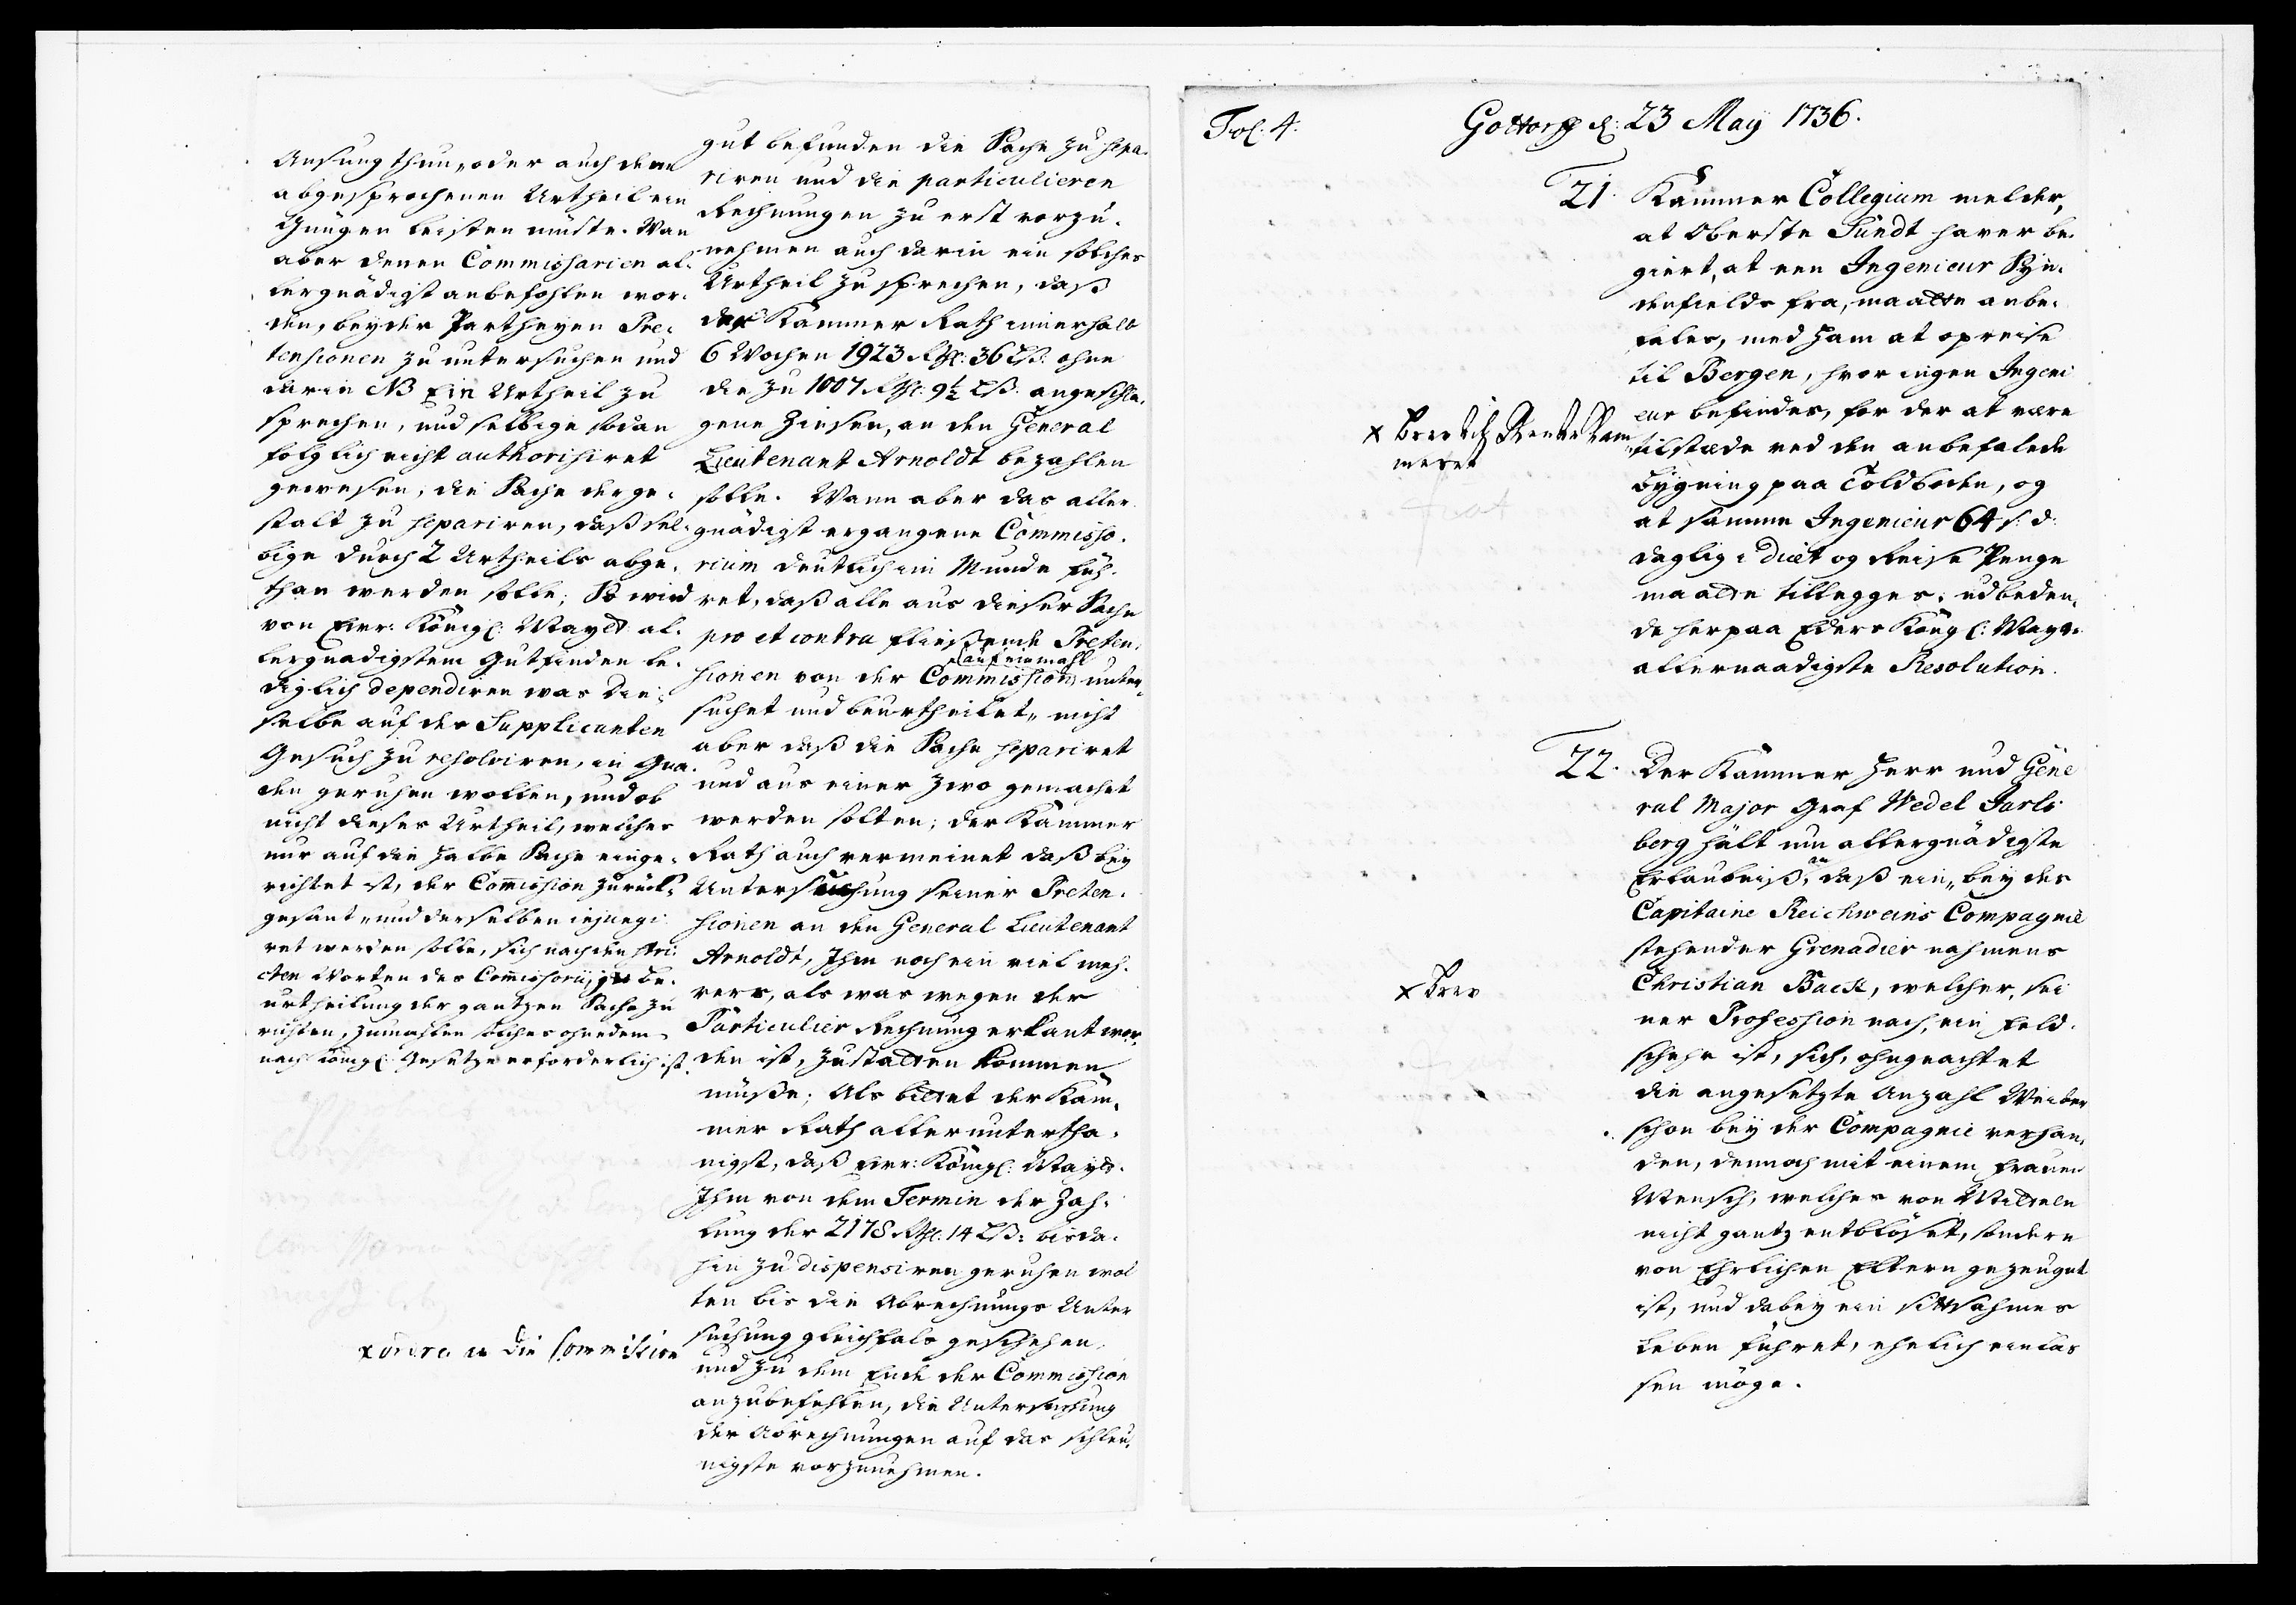 Ansung thun, oder auch dem
abgesprochenen Urtheil ein
Gnügen leisten müste. Wan
aber denen Commissarien al-
lergnädigst anbefohlen wor-
den, beyder Partheyen Præ-
tensionen zu untersuchen und
darin NB Ein Urtheil zu
sprechen, und selbige sodan
folglich nicht authorisiret
gewesen, die Sache derge-
stalt zu separiren, daß sel-
bige durch 2 Urtheils abge-
than werden solle; So wird
von Ewr: Königl: Maytt: al-
lergnadigstem Gutfinden le-
diglich dependiren was Die-
selbe auf des Supplicanten
Gesuch zu resolviren, in Gna-
den geruhen wollen, und ob
nicht dieses Urtheil, welches
nur auf die halbe Sache einge-
richtet ist, der Com̄ission zurück-
gesant, und derselben injungi-
ret werden solle, sich nach den stri-
cten Worten des Com̄issorii, zu be-
urtheilung der gantzen Sache zu
richten, zumahlen solches ohnedem
nach Königl: Gesetze erforderlich ist.
x ordre an die Commission
gut befunden die Sache zu sepa-
riren und die particulieren
Rechnungen zu erst vorzu-
nehmen auch darin ein solches
Urtheil zu sprechen, daß
der Kammer Rath innerhalb
6 Wochen 1923 Rthl: 36 Lß: ohne
die zu 1007 Rthl: 9½ Lß: angeschla-
gene Zinsen, an den General
Lieutenant Arnoldt bezahlen
solle. Wann aber das aller-
gnädigst ergangene Commisso-
rium deutlich im Munde füh-
ret, daß alle aus dieser Sache
pro et contra fließende Præten-
auf einmahl
sionen von der Commission unter-
suchet und beurtheilet, nicht
aber daß die Sache separiret
und aus einer zwo gemachet
werden solten; der Kammer
Rath auch vermeinet daß bey
Untersuchung seiner Præten-
sionen an den General Lieutenant
Arnoldt, Ihm noch ein viel meh-
rers, als was wegen der
Particulier Rechnung erkant wor-
den ist, zustatten kommen
müße; Als bittet der Kam-
mer Rath allerunterthä-
nigst, daß Ewr: Königl: Maytt:
Ihm von dem Termin der Zah-
lung der 2178 Rthl: 14 Lß: bis da-
hin zu dispensiren geruhen wol
ten bis die Abrechnungs Unter
suchung gleichfals geschehen,
und zu dem Ende der Commission
anzubefehlen, die Untersuchung
der Abrechnungen auf das schleu-
nigste vorzunehmen.
Fol: 4.
Gottorp d: 23 May 1736.
21. Kammer Collegium melder,
at Oberste Sundt haver be-
giert, at een Ingenieur Syn-
denfields fra, maatte anbe-
fales, med ham at opreise
til Bergen, hvor ingen Ingeni
eur befindes, for der at være
tilstæde ved den anbefalede
Bygning paa Toldboden, og
at samme Ingenieur 64 s: d:
daglig i Diæt og Reise Penge
maatte tillegges; udbeden-
de herpaa Eders Kongl: Mayts
allernaadigste Resolution.
x Brev til Rente Kam
meret
22. Der Kammer Herr und Gene
ral Major Graf Wedel Jarls
berg hält um allergnädigste
Erlaubniß an, daß ein, bey des
Capitaine Reichweins Compagnie
stehender Grenadier nahmens
Christian Back, welcher, sei
ner Profession nach, ein Feld-
schehr ist, sich, ohngeachtet
die angesetzte Anzahl Weiber
schon bey der Compagnie verhan-
den, dennoch mit einem Frauen
Mensch, welches von Mitteln
nicht gantz entblöset, sondern
von Ehrlichen Eltern gezeuget
ist, und dabey ein sittsahmes
Leben führet, ehelich einlas
sen möge.
x Brev